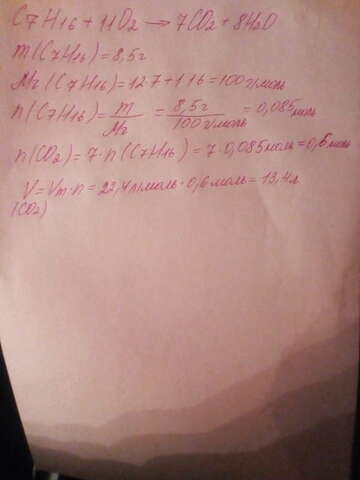 C7H16 + 11O2 → 7CO2 + 8H2O
m(C7H16) = 8,5г
Mr(C7H16) = 12·7 + 1·16 = 100 г/моль
n(C7H16) = m/Mr = 8,5г/100г/моль = 0,085моль
n(CO2) = 7·n(C7H16) = 7·0,085моль = 0,6моль
V = Vm·n = 22,4л/моль·0,6моль = 13,4л
(CO2)